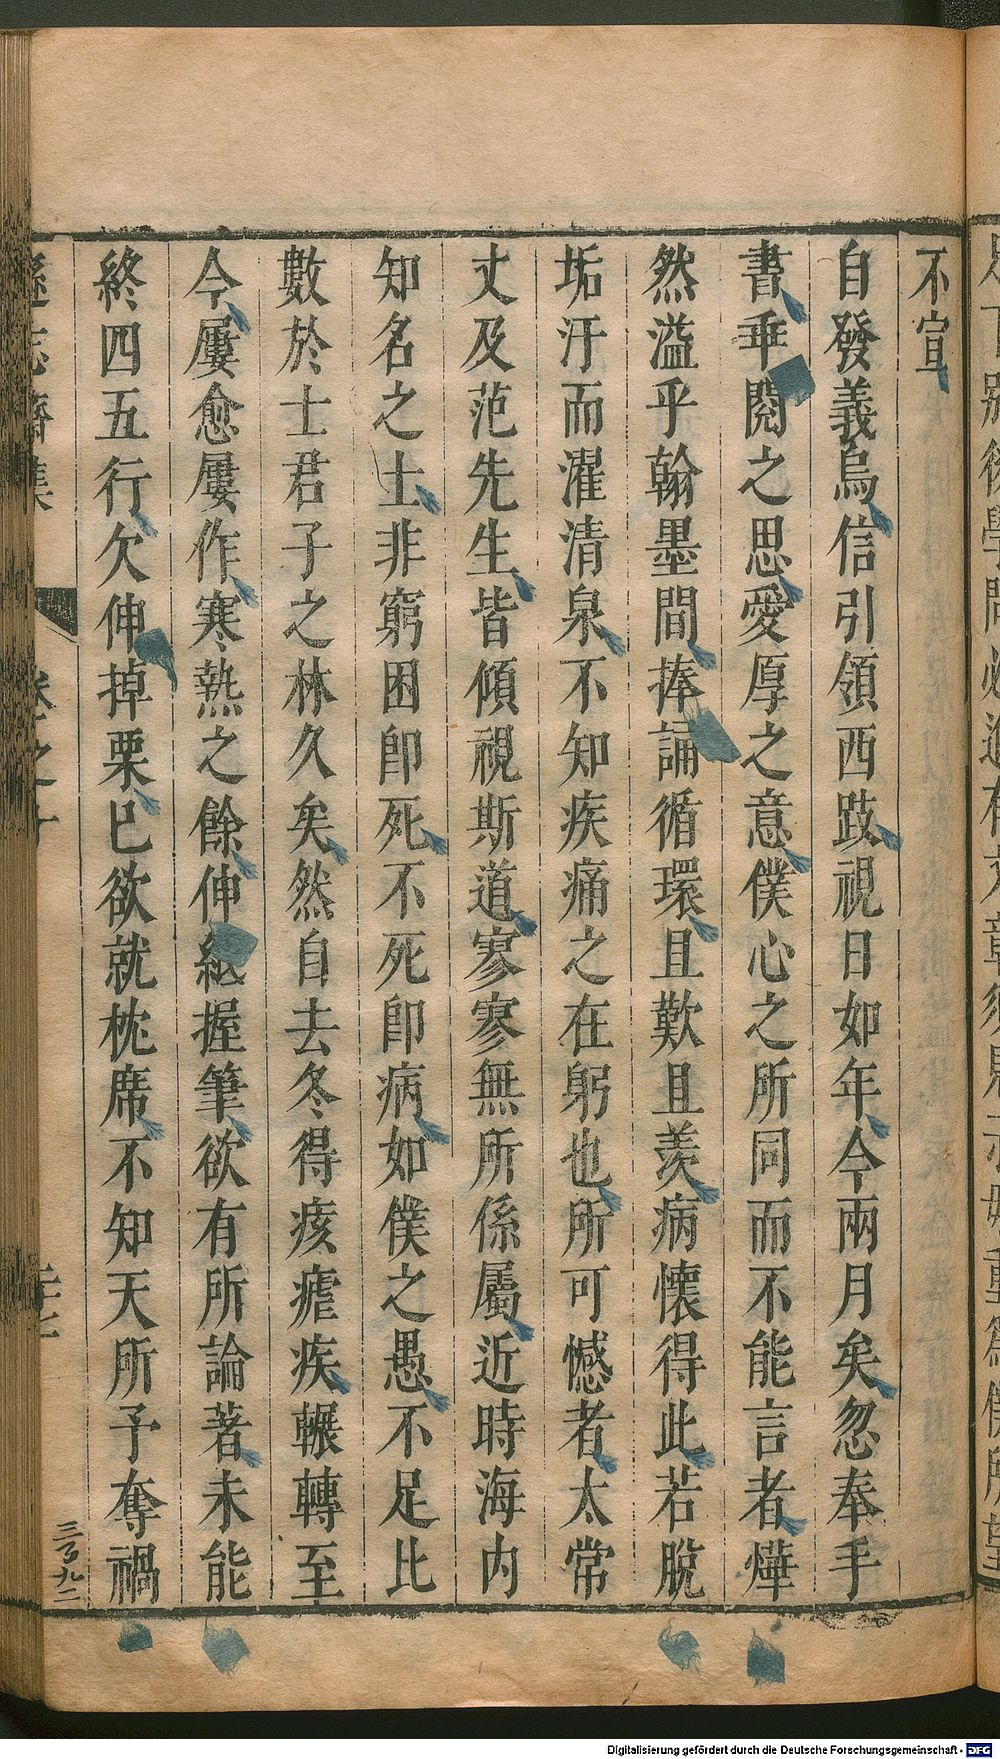 不宣
自發義烏信引領西跂視日如年今兩月矣忽奉手
書垂閱之思愛厚之意僕心之所同而不能言者燁
然溢乎翰墨間捧誦循環且歎且羨病懷得此若脫
垢汙而濯清泉不知疾痛之在躬也所可憾者太常
丈及范先生皆傾視斯道寥寥無所係屬近時海内
知名之士非窮困卽死不死卽病如僕之愚不足比
數於士君子之林久矣然自去冬得痎瘧疾輾轉至
今屢愈屢作寒熱之餘伸紙握筆欲有所論著未能
終四五行欠伸掉栗已欲就枕席不知天所予奪禍
遜志齋集
卷之十
三〇九二
Digitalisierung gefördert durch die Deutsche Forschungsgemeinschaft - DFG